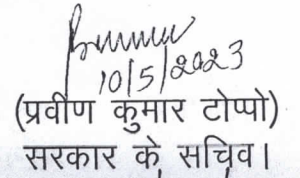 10/5/2023
(प्रवीण कुमार टोप्पो)
सरकार के सचिव।